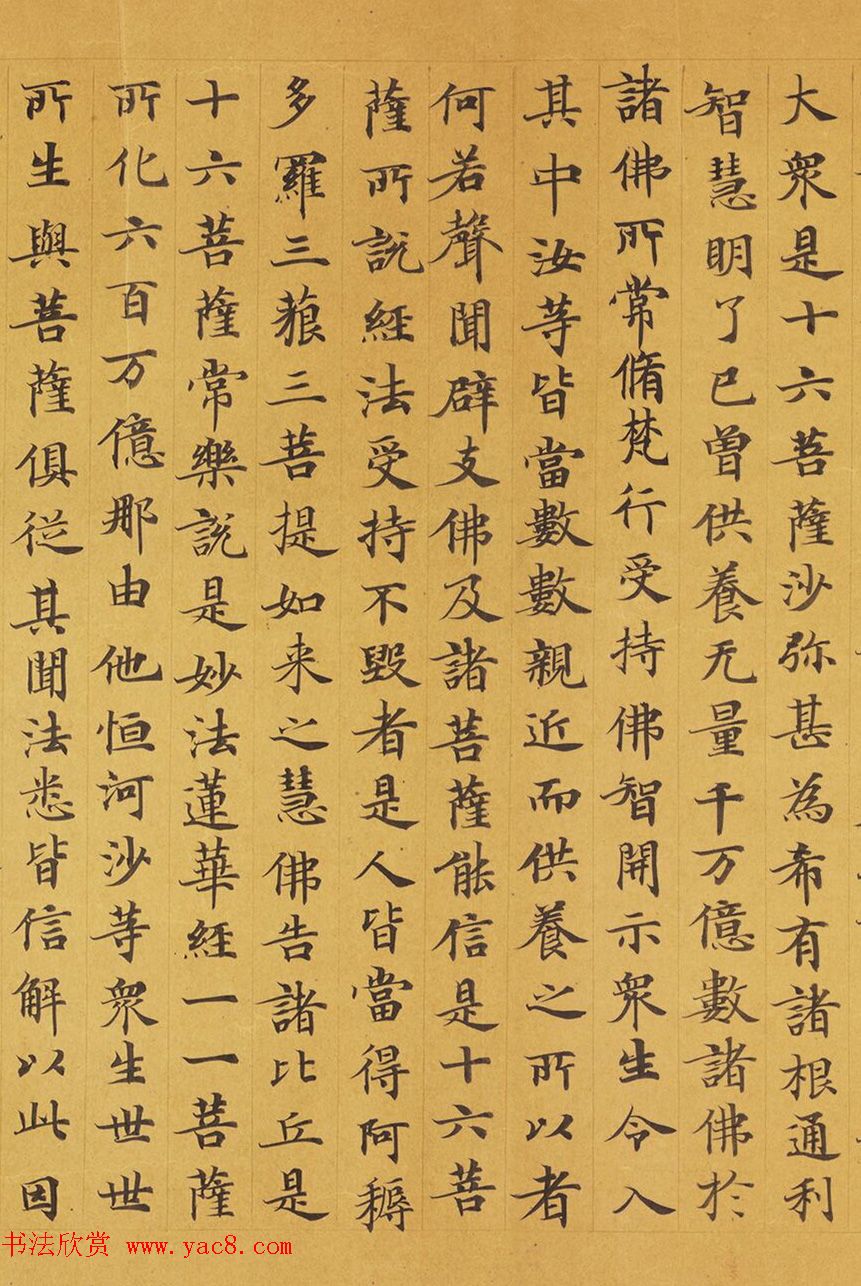 大衆是十六菩薩沙弥甚為希有諸根通利
智慧明了已曽供養无量千万億數諸佛於
諸佛所常脩梵行受持佛智開示衆生令入
其中汝等皆當數數親近而供養之所以者
何若聲聞辟支佛及諸菩薩能信是十六菩
薩所說經法受持不毀者是人皆當得阿耨
多羅三藐三菩提如来之慧佛告諸比丘是
十六菩薩常樂說是妙法蓮華經一一菩薩
所化六百万億那由他恒河沙等衆生世世
所生與菩薩俱從其聞法悉皆信解以此因
书法欣赏 www.yac8.com